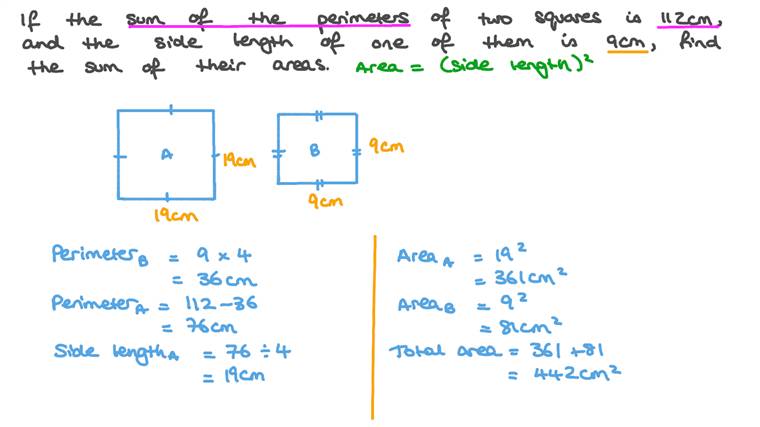 If the sum of the perimeters of two squares is 112cm,
and the side length of one of them is 9cm, find
the sum of their areas. Area = (side length)²
A
B
19cm
9cm
19cm
9cm
Perimeter_B = 9 × 4
= 36cm
Perimeter_A = 112 - 36
= 76cm
Side length_A = 76 ÷ 4
= 19cm
Area_A = 19²
= 361cm²
Area_B = 9²
= 81cm²
Total area = 361 + 81
= 442cm²